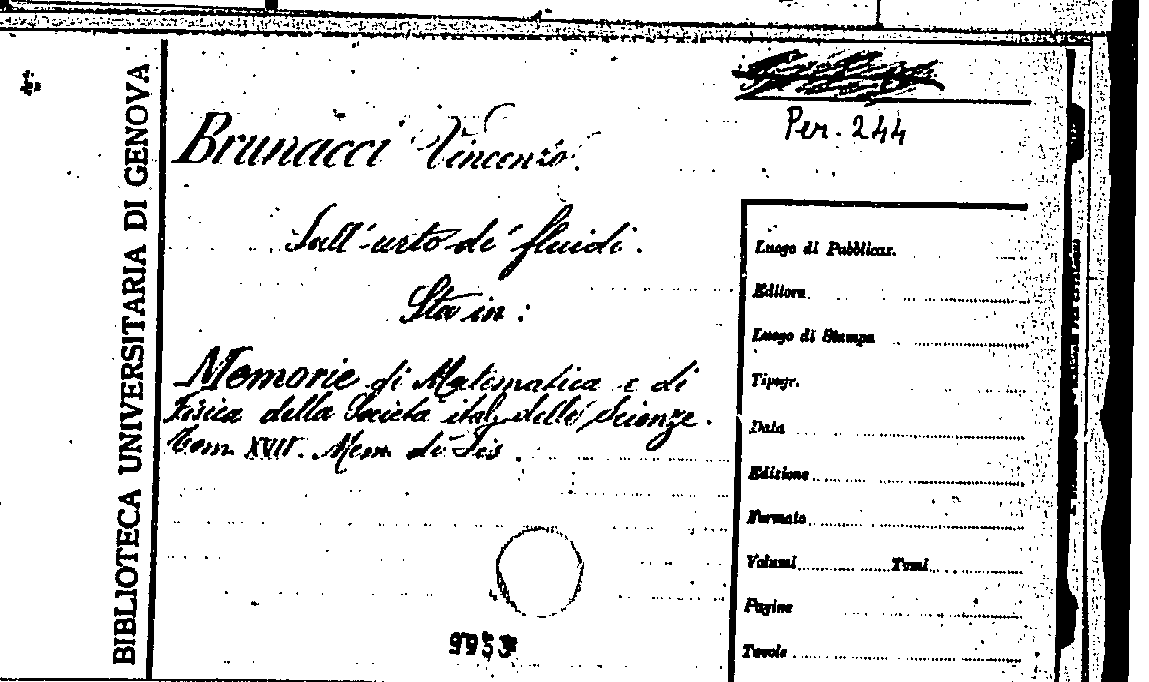 BIBLIOTECA UNIVERSITARIA DI GENOVA
Per. 244
Brunacci Vincenzo.
Sull'urto de' fluidi.
Sta in:
Memorie di Matematica e di
Fisica della Società ital. delle Scienze.
Tom. XVII. Mem. di Fis.
9953
Luogo di Pubblicaz.
Editore
Luogo di Stampa
Tipogr.
Data
Edizione
Formato
Volumi Tomi
Pagine
Tavole